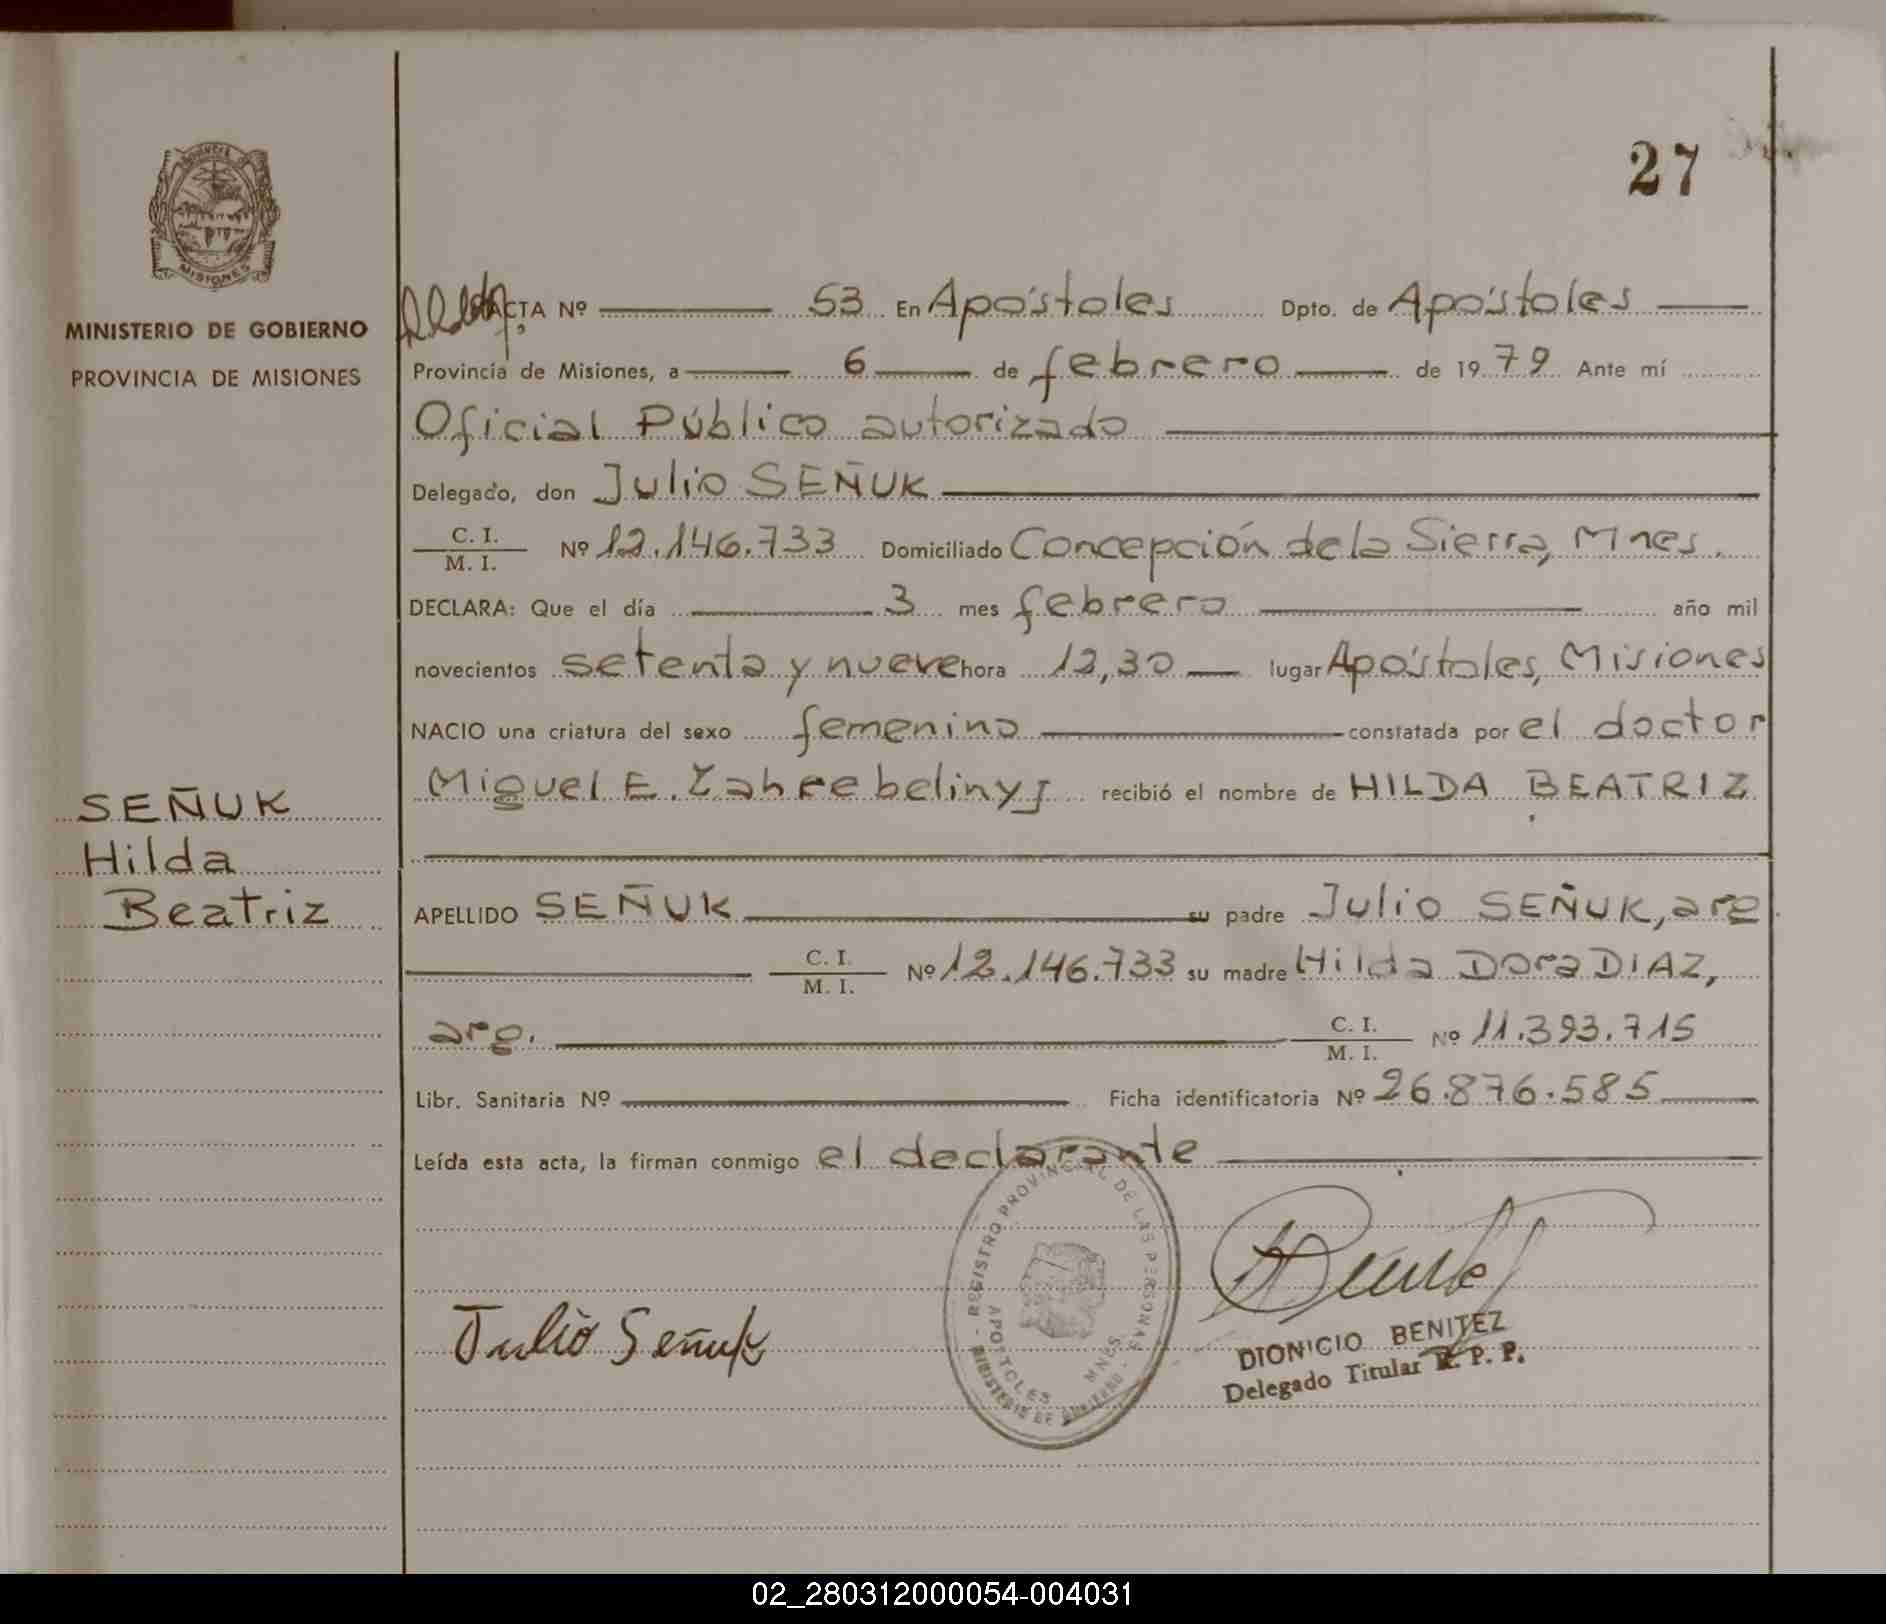 27
PROVINCIA DE
MISIONES
MINISTERIO DE GOBIERNO
PROVINCIA DE MISIONES
ACTA Nº 53 En Apóstoles Dpto. de Apóstoles
Provincia de Misiones, a 6 de febrero de 1979 Ante mí
Oficial Público autorizado
Delegado, don Julio SEÑUK
C. I.
M. I.
Nº 12.146.733 Domiciliado Concepción de la Sierra, Mnes.
DECLARA: Que el día 3 mes febrero año mil
novecientos setenta y nueve hora 12,30 lugar Apóstoles, Misiones
NACIO una criatura del sexo femenino constatada por el doctor
Miguel E. recibió el nombre de HILDA BEATRIZ
SEÑUK
Hilda
Beatriz
APELLIDO SEÑUK su padre Julio SEÑUK, arg
C. I.
M. I.
Nº 12.146.733 su madre Hilda Dora DIAZ,
arg.
C. I.
M. I.
Nº 11.393.715
Libr. Sanitaria Nº Ficha identificatoria Nº 26.876.585
Leída esta acta, la firman conmigo el declarante
REGISTRO PROVINCIAL DE LAS PERSONAS
APOSTOLES MNES
MINISTERIO DE GOBIERNO
Julio Señuk
DIONICIO BENITEZ
Delegado Titular R. P. P.
02_280312000054-004031